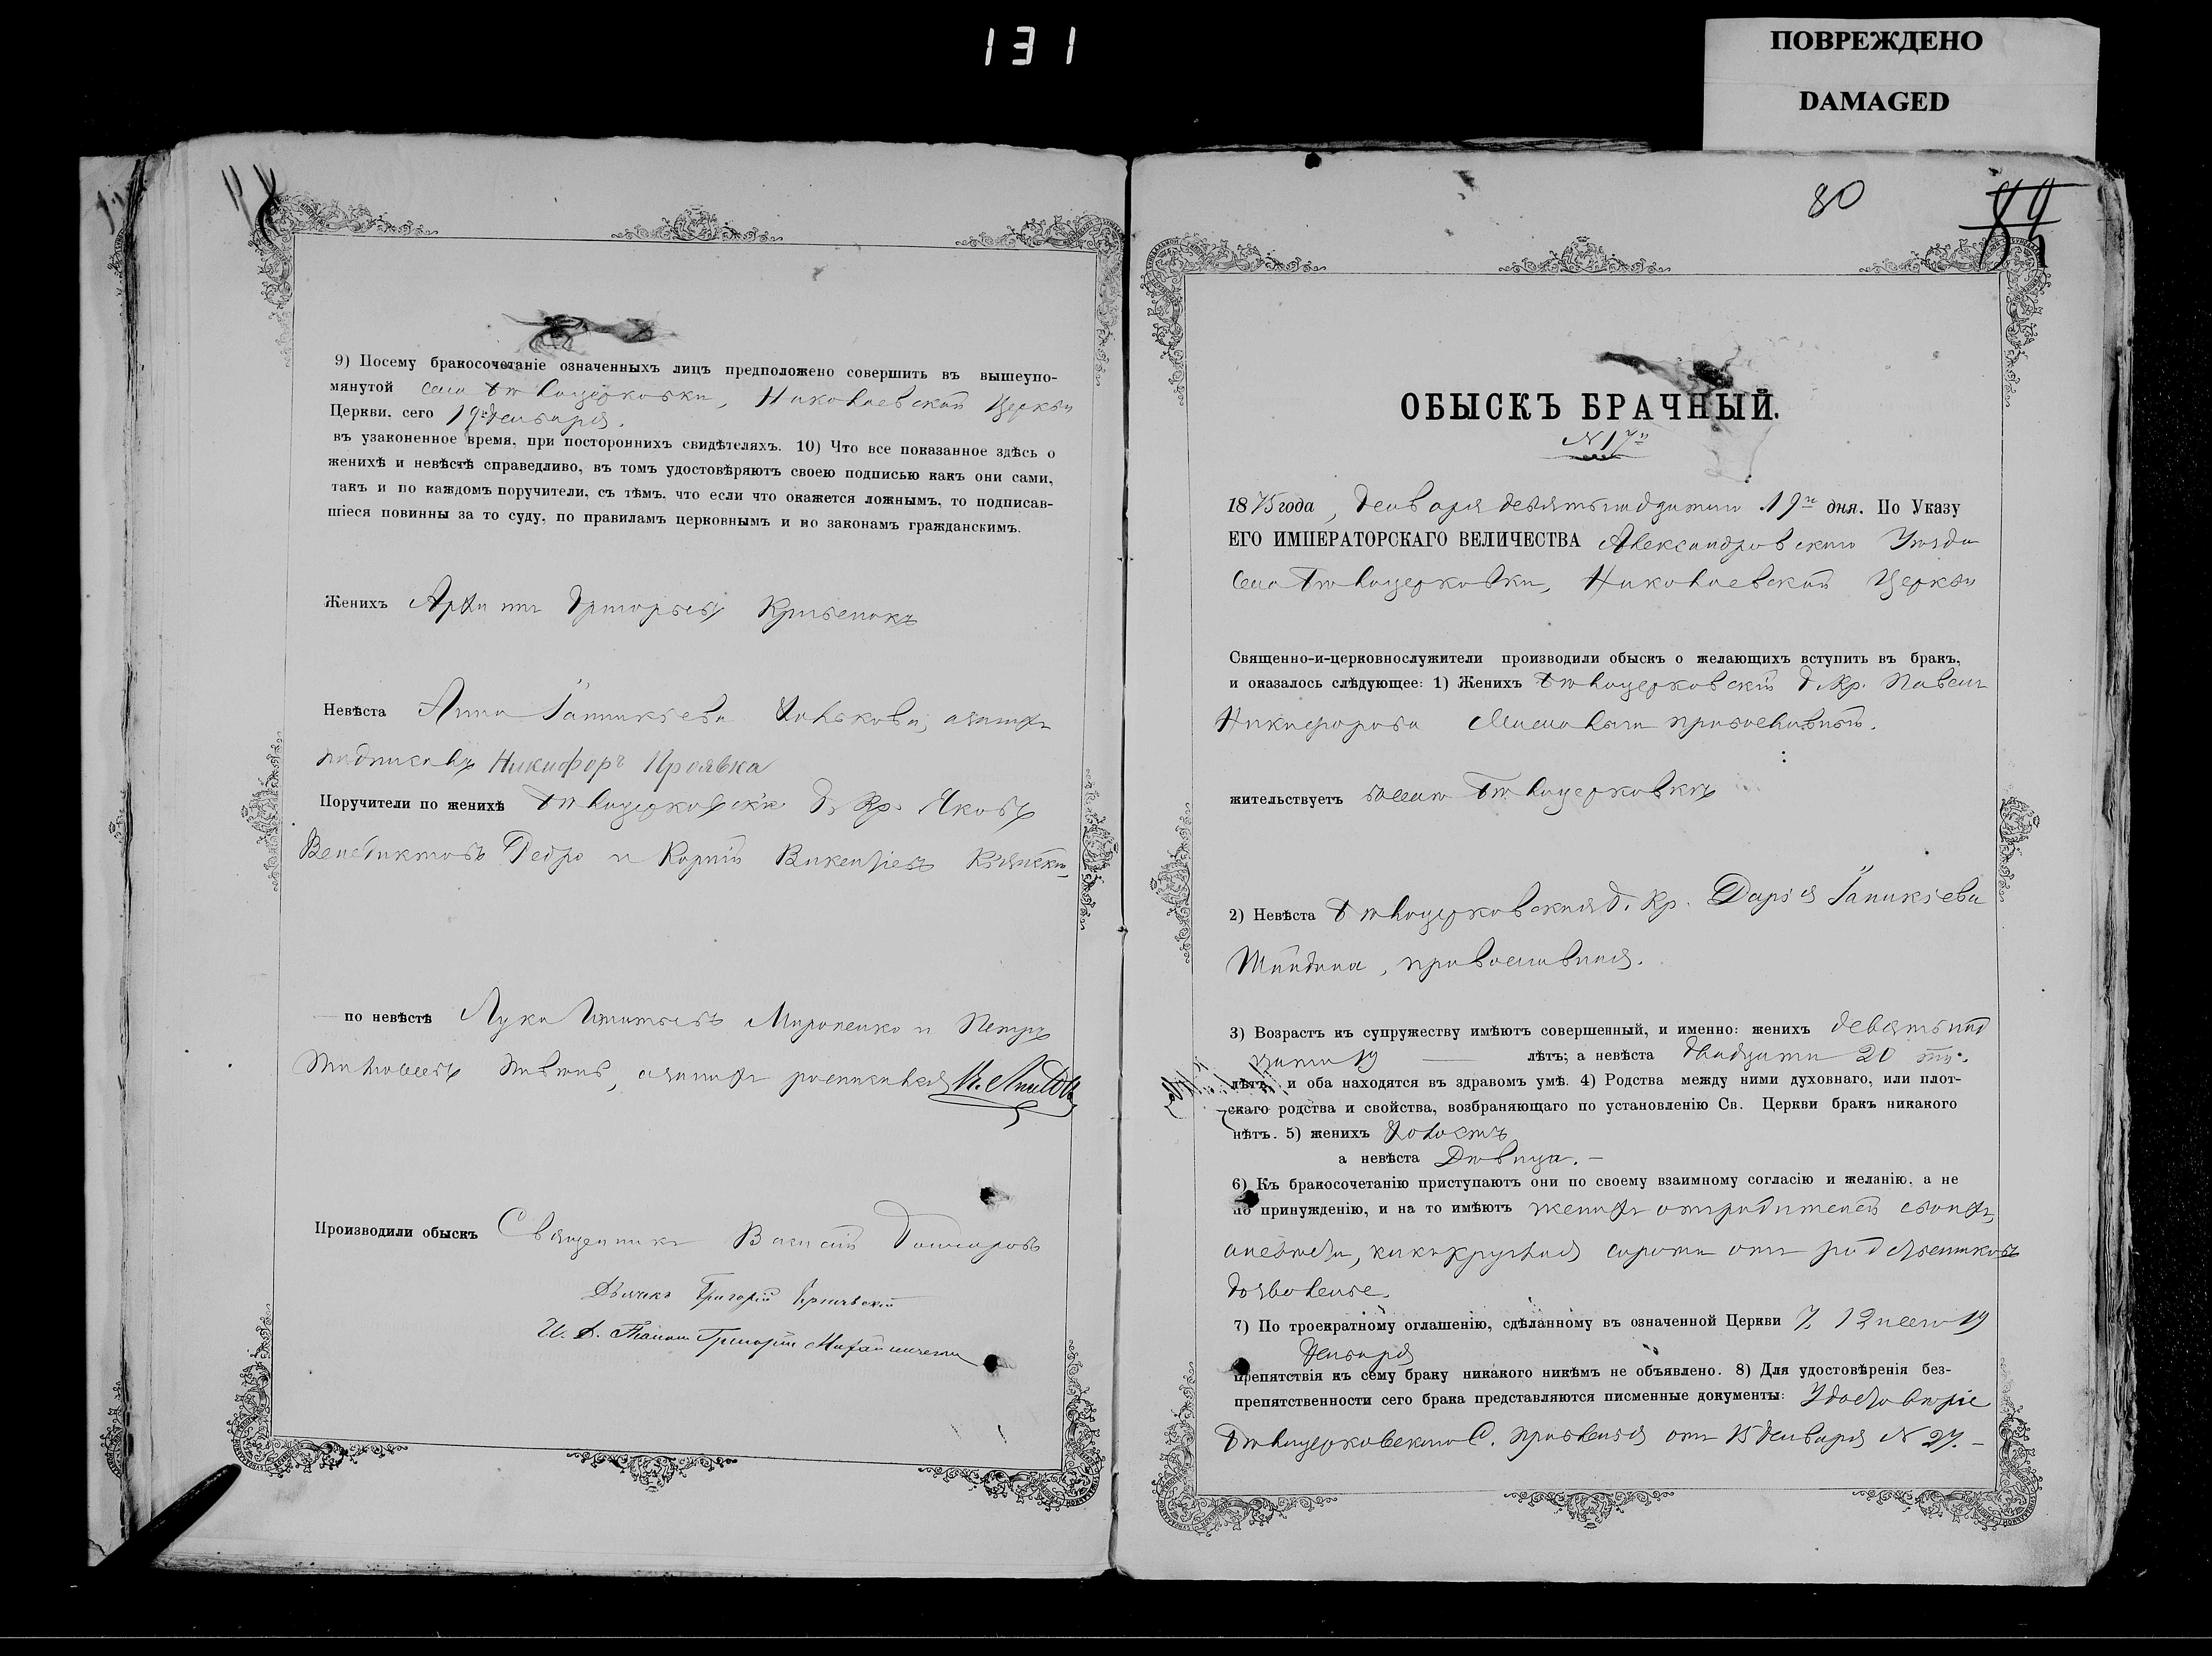 131
ПОВРЕЖДЕНО
DAMAGED
9) Посему бракосочетаніе означенныхъ лицъ предположено совершить въ вышеупо-
мянутой села Бѣлоцерковки, Николаевской Церкви
Церкви. сего 19го Генваря.
въ узаконенное время, при постороннихъ свидѣтеляхъ. 10) Что все показанное здѣсь о
женихѣ и невѣстѣ справедливо, въ томъ удостовѣряютъ своею подписью какъ они сами,
такъ и по каждомъ поручители, съ тѣмъ, что если что окажется ложнымъ, то подписав-
шіеся повинны за то суду, по правиламъ церковнымъ и по законамъ гражданскимъ.
Женихъ Григорьевъ
Невѣста Анна Іаникіева
Никифоръ Проявка
Поручители по женихѣ Бѣлоцерковскіе Г. Кр. Яковъ
Венедиктовъ Дедро и Корній Викентіевъ
по невѣстѣ Лука Мироненко и Петръ
Производили обыскъ Священникъ Василій
Дьячекъ Григорій
И. Д. Григорій
80
ОБЫСКЪ БРАЧНЫЙ.
N 17й
1875 года, Генваря девятьнадцатого 19го дня. По Указу
ЕГО ИМПЕРАТОРСКАГО ВЕЛИЧЕСТВА Александровского Уезда
Села Бѣлоцерковки, Николаевской Церкви
Священно-и-церковнослужители производили обыскъ о желающихъ вступить въ бракъ,
и оказалось слѣдующее: 1) Женихъ Бѣлоцерковскій Г. Кр. Павелъ
Никифоровъ православный.
жительствуетъ в селѣ Бѣлоцерковкѣ
2) Невѣста Бѣлоцерковская Г. Кр. Дарія Іаникіева
православная.
3) Возрастъ къ супружеству имѣютъ совершенный, и именно: женихъ девятьнад
цати 19 лѣтъ; а невѣста двадцати 20 ти.
лѣтъ, и оба находятся въ здравомъ умѣ. 4) Родства между ними духовнаго, или плот-
скаго родства и свойства, возбраняющаго по установленію Св. Церкви бракъ никакого
нѣтъ. 5) женихъ Холостъ
а невѣста Дѣвица. —
6) Къ бракосочетанію приступаютъ они по своему взаимному согласію и желанію, а не
по принужденію, и на то имѣютъ женихъ отъ родителей своихъ,
а невѣста, какъ круглая сирота отъ родственниковъ
дозволеніе.
7) По троекратному оглашенію, сдѣланному въ означенной Церкви 7, 12 и сего 19
Генваря
препятствія къ сему браку никакого никѣмъ не объявлено. 8) Для удостовѣренія без-
препятственности сего брака представляются писменные документы: Удостовѣріе
Бѣлоцерковского С. правленія отъ 15 Генваря N 27. —